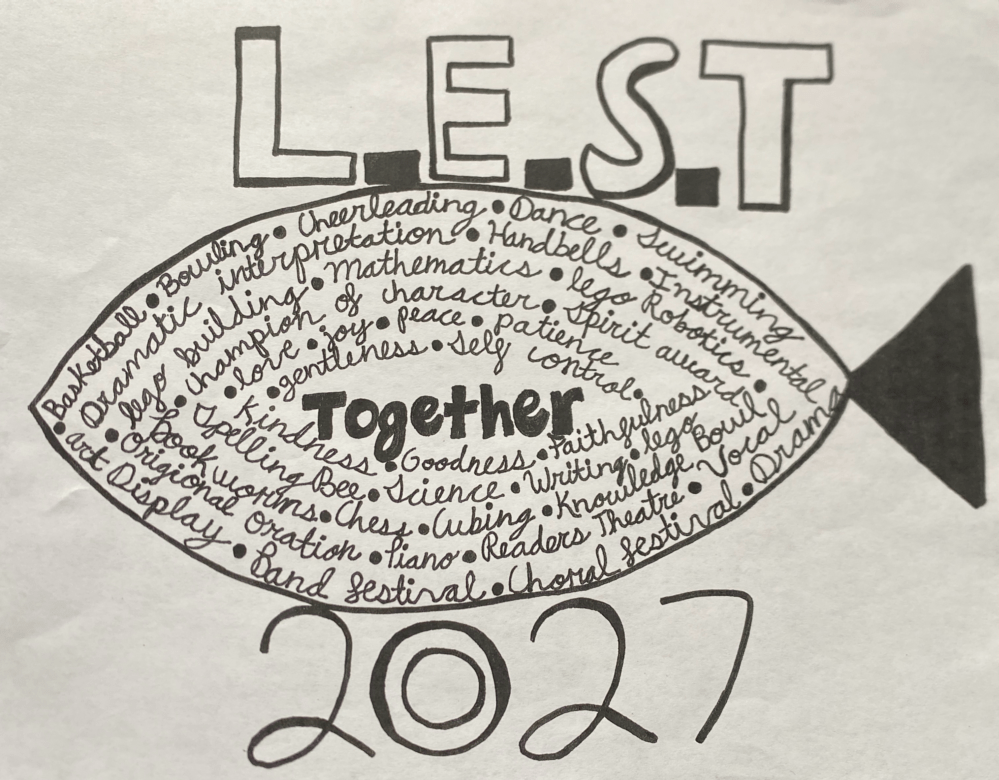 L.E.S.T
Basketball • Bowling • Cheerleading • Dance • Swimming
Dramatic interpretation • Handbells • Instrumental
lego building • Mathematics • lego Robotics •
• Champion of character • Spirit award
• love • joy • peace • patience
• gentleness • self control •
Together
Kindness • Goodness • Faithfulness
Spelling Bee • Science • Writing • lego
book worms • Chess • Cubing • Knowledge Bowl
• Origional oration • Piano • Readers Theatre • Vocal
• art Display • Band festival • Choral festival • Drama
2027